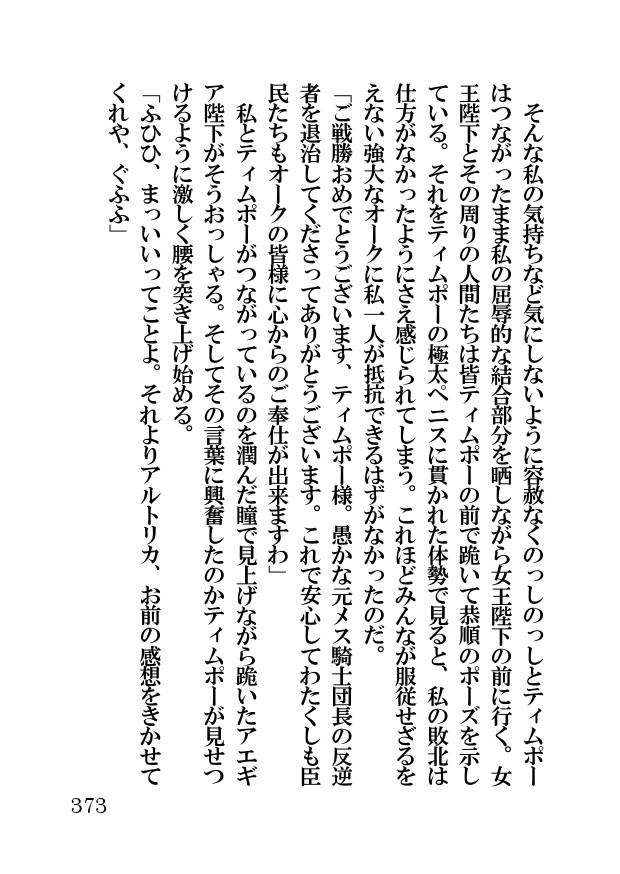 そんな私の気持ちなど気にしないように容赦なくのっしのっしとティムポー
はつながったまま私の屈辱的な結合部分を晒しながら女王陛下の前に行く。女
王陛下とその周りの人間たちは皆ティムポーの前で跪いて恭順のポーズを示し
ている。それをティムポーの極太ペニスに貫かれた体勢で見ると、私の敗北は
仕方がなかったようにさえ感じられてしまう。これほどみんなが服従せざるを
えない強大なオークに私一人が抵抗できるはずがなかったのだ。
「ご戦勝おめでとうございます、ティムポー様。愚かな元メス騎士団長の反逆
者を退治してくださってありがとうございます。これで安心してわたくしも臣
民たちもオークの皆様に心からのご奉仕が出来ますわ」
　私とティムポーがつながっているのを潤んだ瞳で見上げながら跪いたアエギ
ア陛下がそうおっしゃる。そしてその言葉に興奮したのかティムポーが見せつ
けるように激しく腰を突き上げ始める。
「ふひひ、まっいいってことよ。それよりアルトリカ、お前の感想をきかせて
くれや、ぐふふ」
373